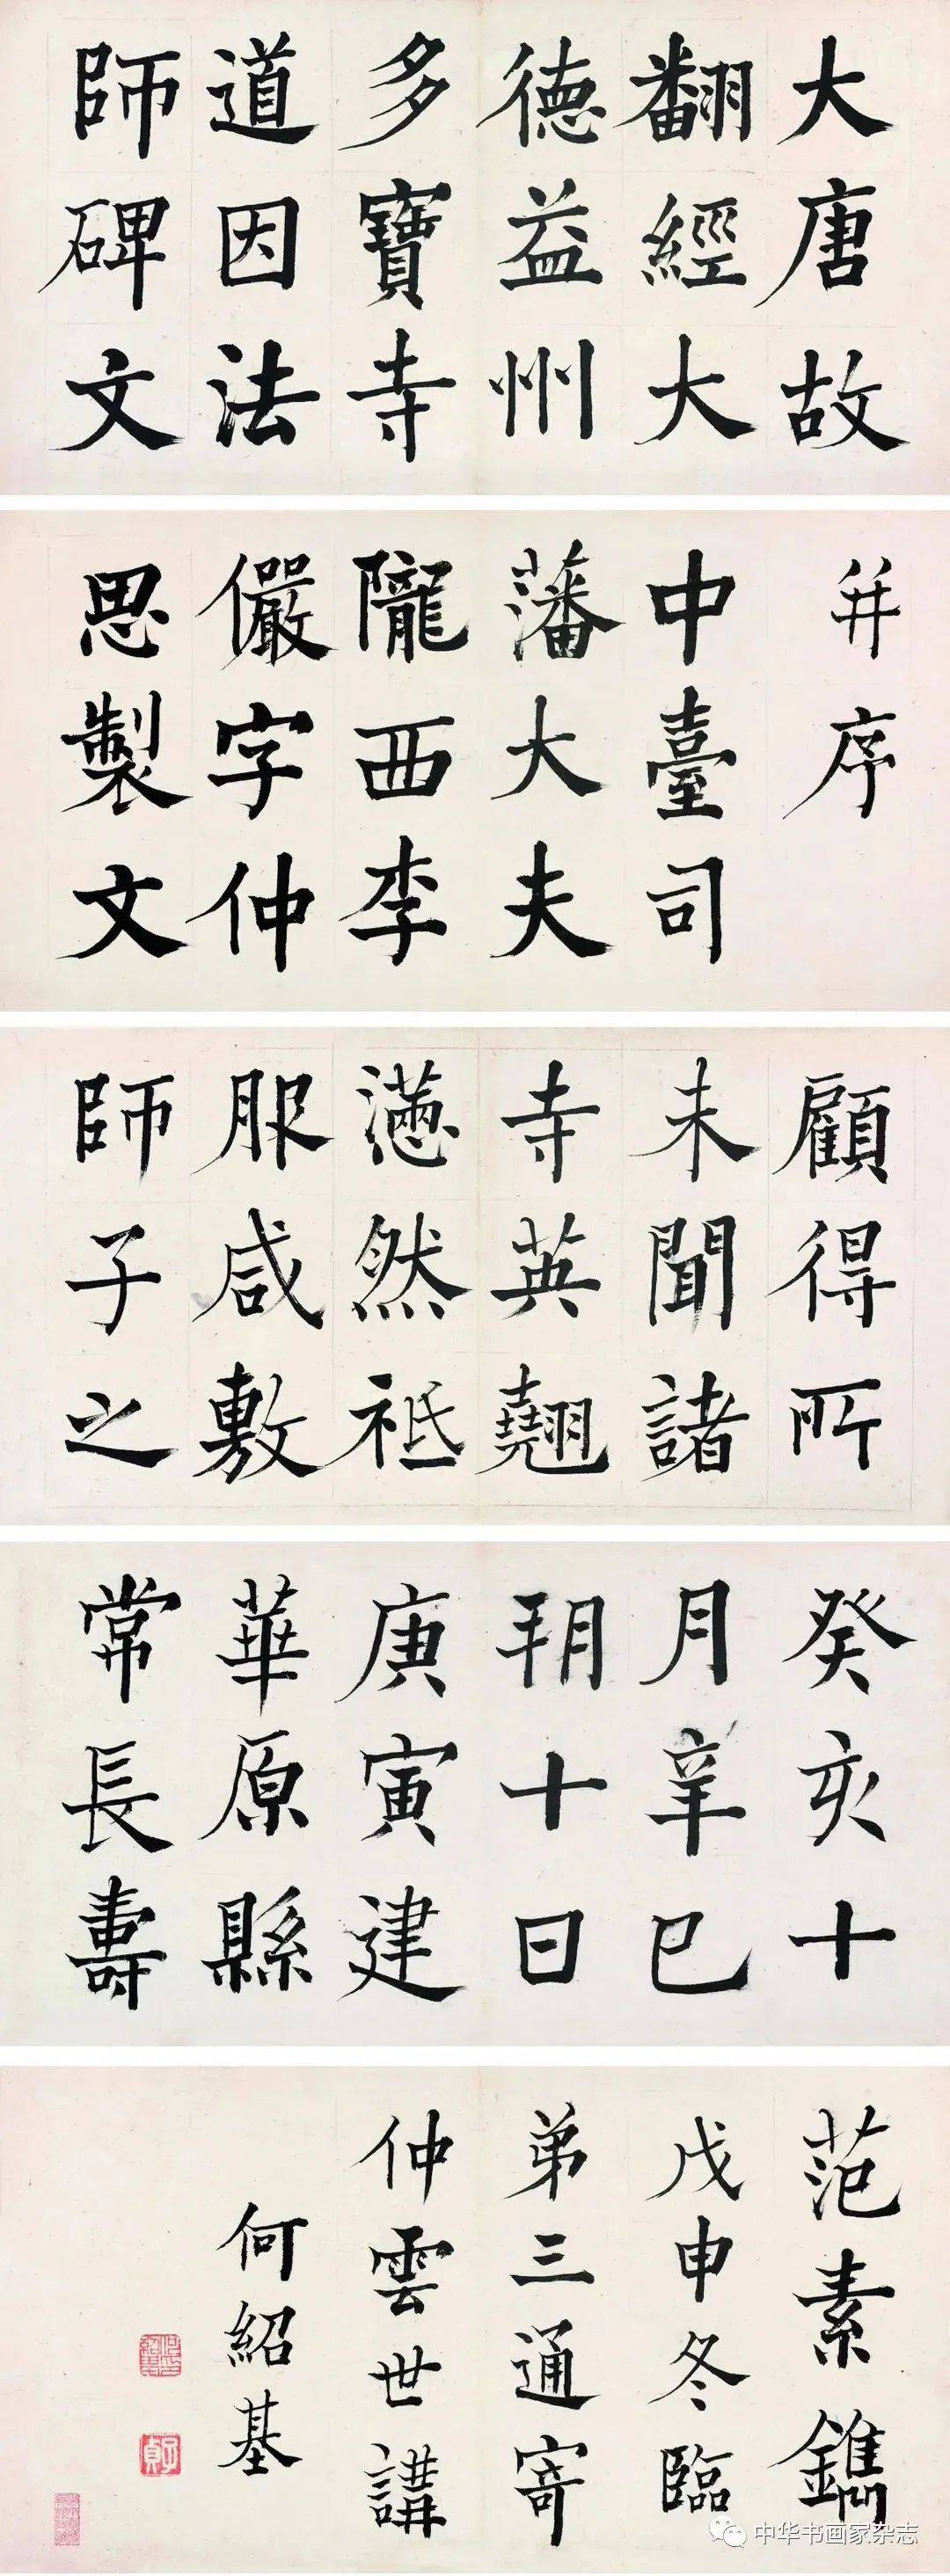 大唐故
翻經大
德益州
多寶寺
道因法
師碑文
并序
中臺司
藩大夫
隴西李
儼字仲
思製文
顧得所
未聞諸
寺英翹
懣然祗
服咸敷
師子之
癸亥十
月辛巳
朔十日
庚寅建
華原縣
常長壽
范素鐫
戊申冬臨
弟三通寄
仲雲世講
何紹基
子貞
中华书画家杂志